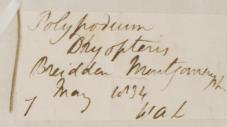 Polypodium
Dryopteris
Breidden Montgomerysh.
7 May 1834
WAL